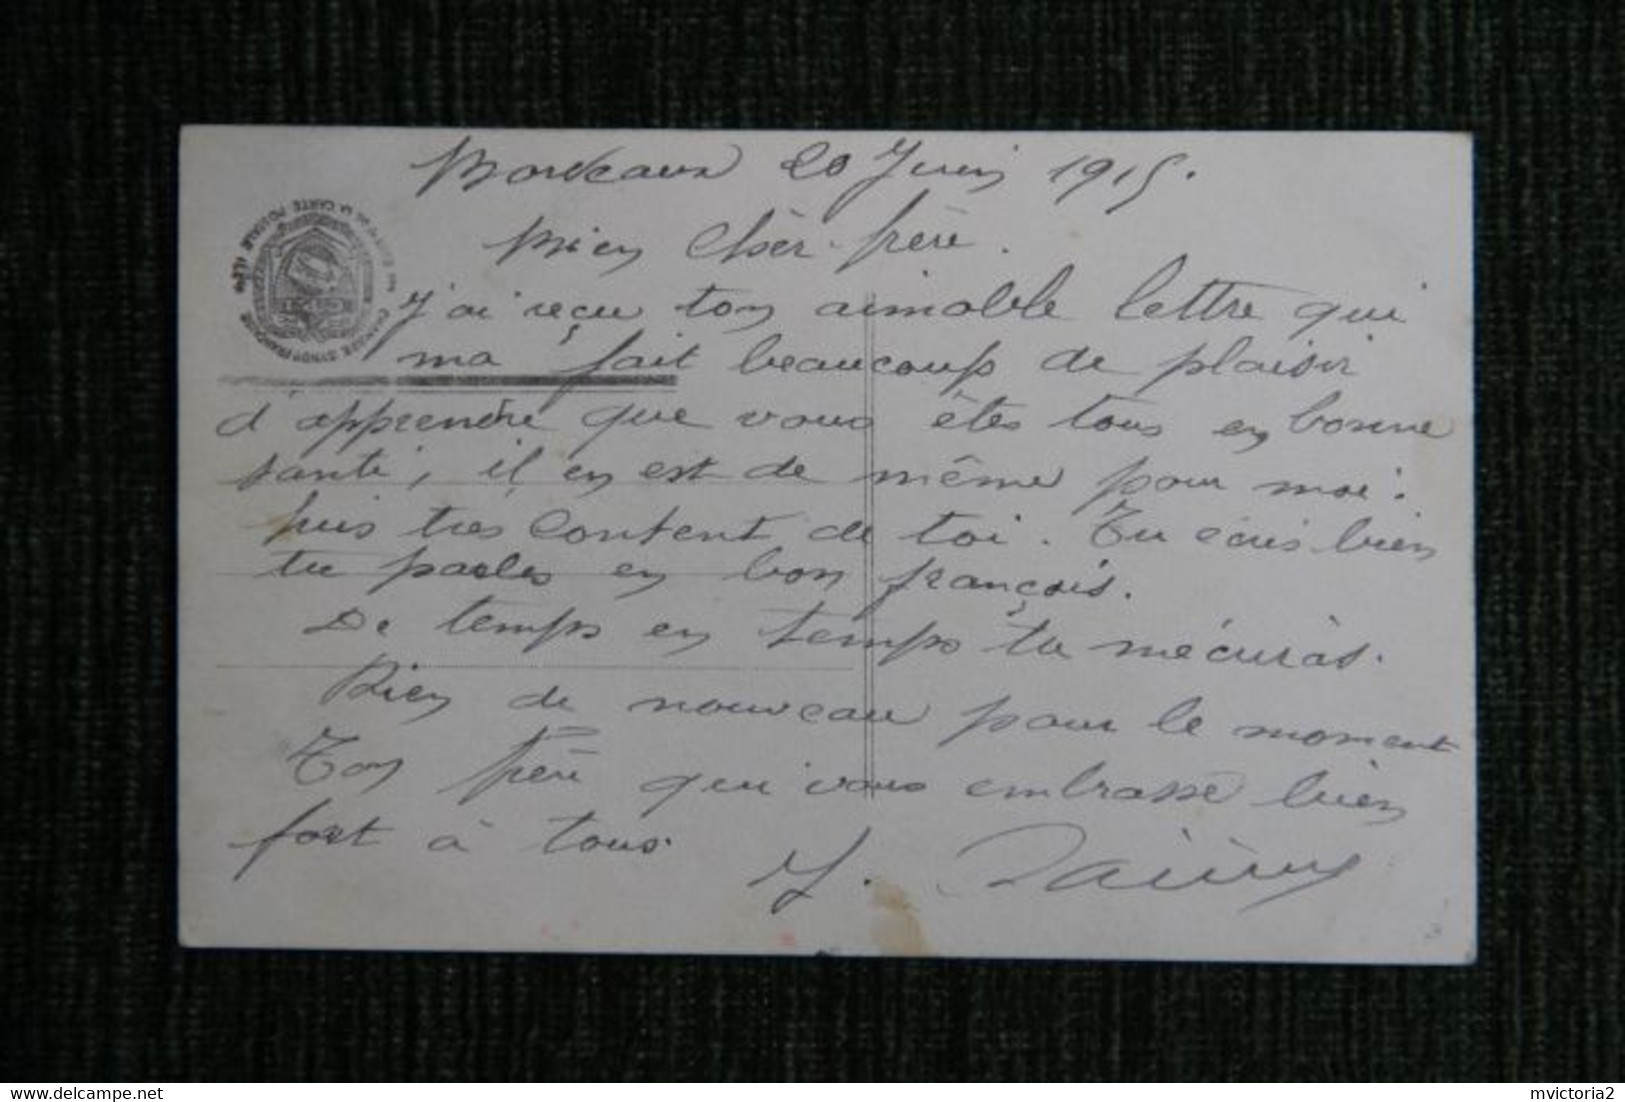 Bordeaux 20 Juin 1915.
Bien Chèr frère.
J'ai reçu ton aimable lettre qui
ma fait beaucoup de plaisir
d'apprendre que vous êtes tous en bonne
santé, il en est de même pour moi.
suis tres content de toi. Tu ecris bien
tu parles en bon français.
De temps en temps tu mécuras.
Rien de nouveau pour le moment
Ton frère qui vous embrasse bien
fort à tous.
J.
CHAMBRE SYND FRANÇAISE
DE LA CARTE POSTALE ILL
delcampe.net
mvictoria2